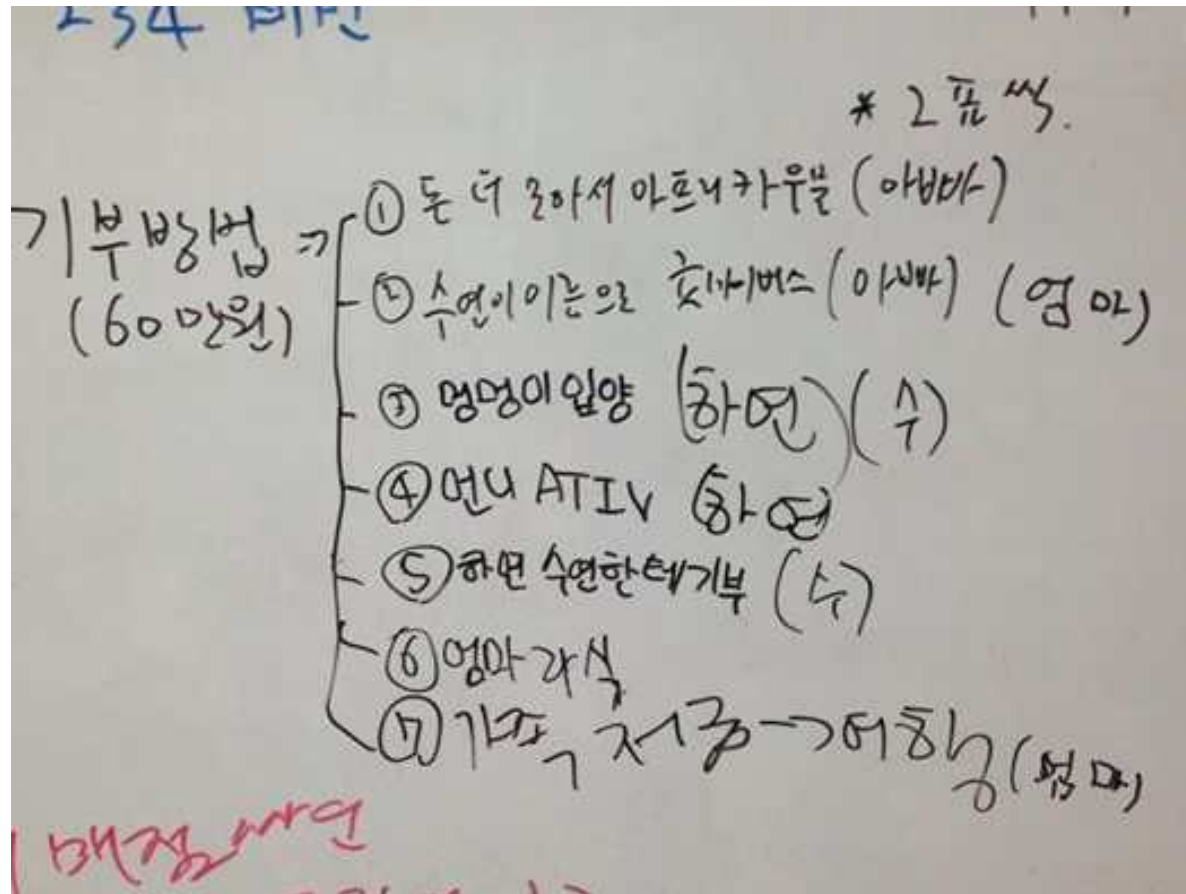 234
* 2표씩.
기부방법 ⇒
(60만원)
① 돈 더 모아서 아프리카우물 (아빠)
② 수연이이름으로 굿네이버스 (아빠) (엄마)
③ 멍멍이입양 (하연) (수)
④ 언니 ATIV (하연)
⑤ 하연 수연한테기부 (수)
⑥ 엄마 라식
⑦ 가족 저금 → 여행 (엄마)